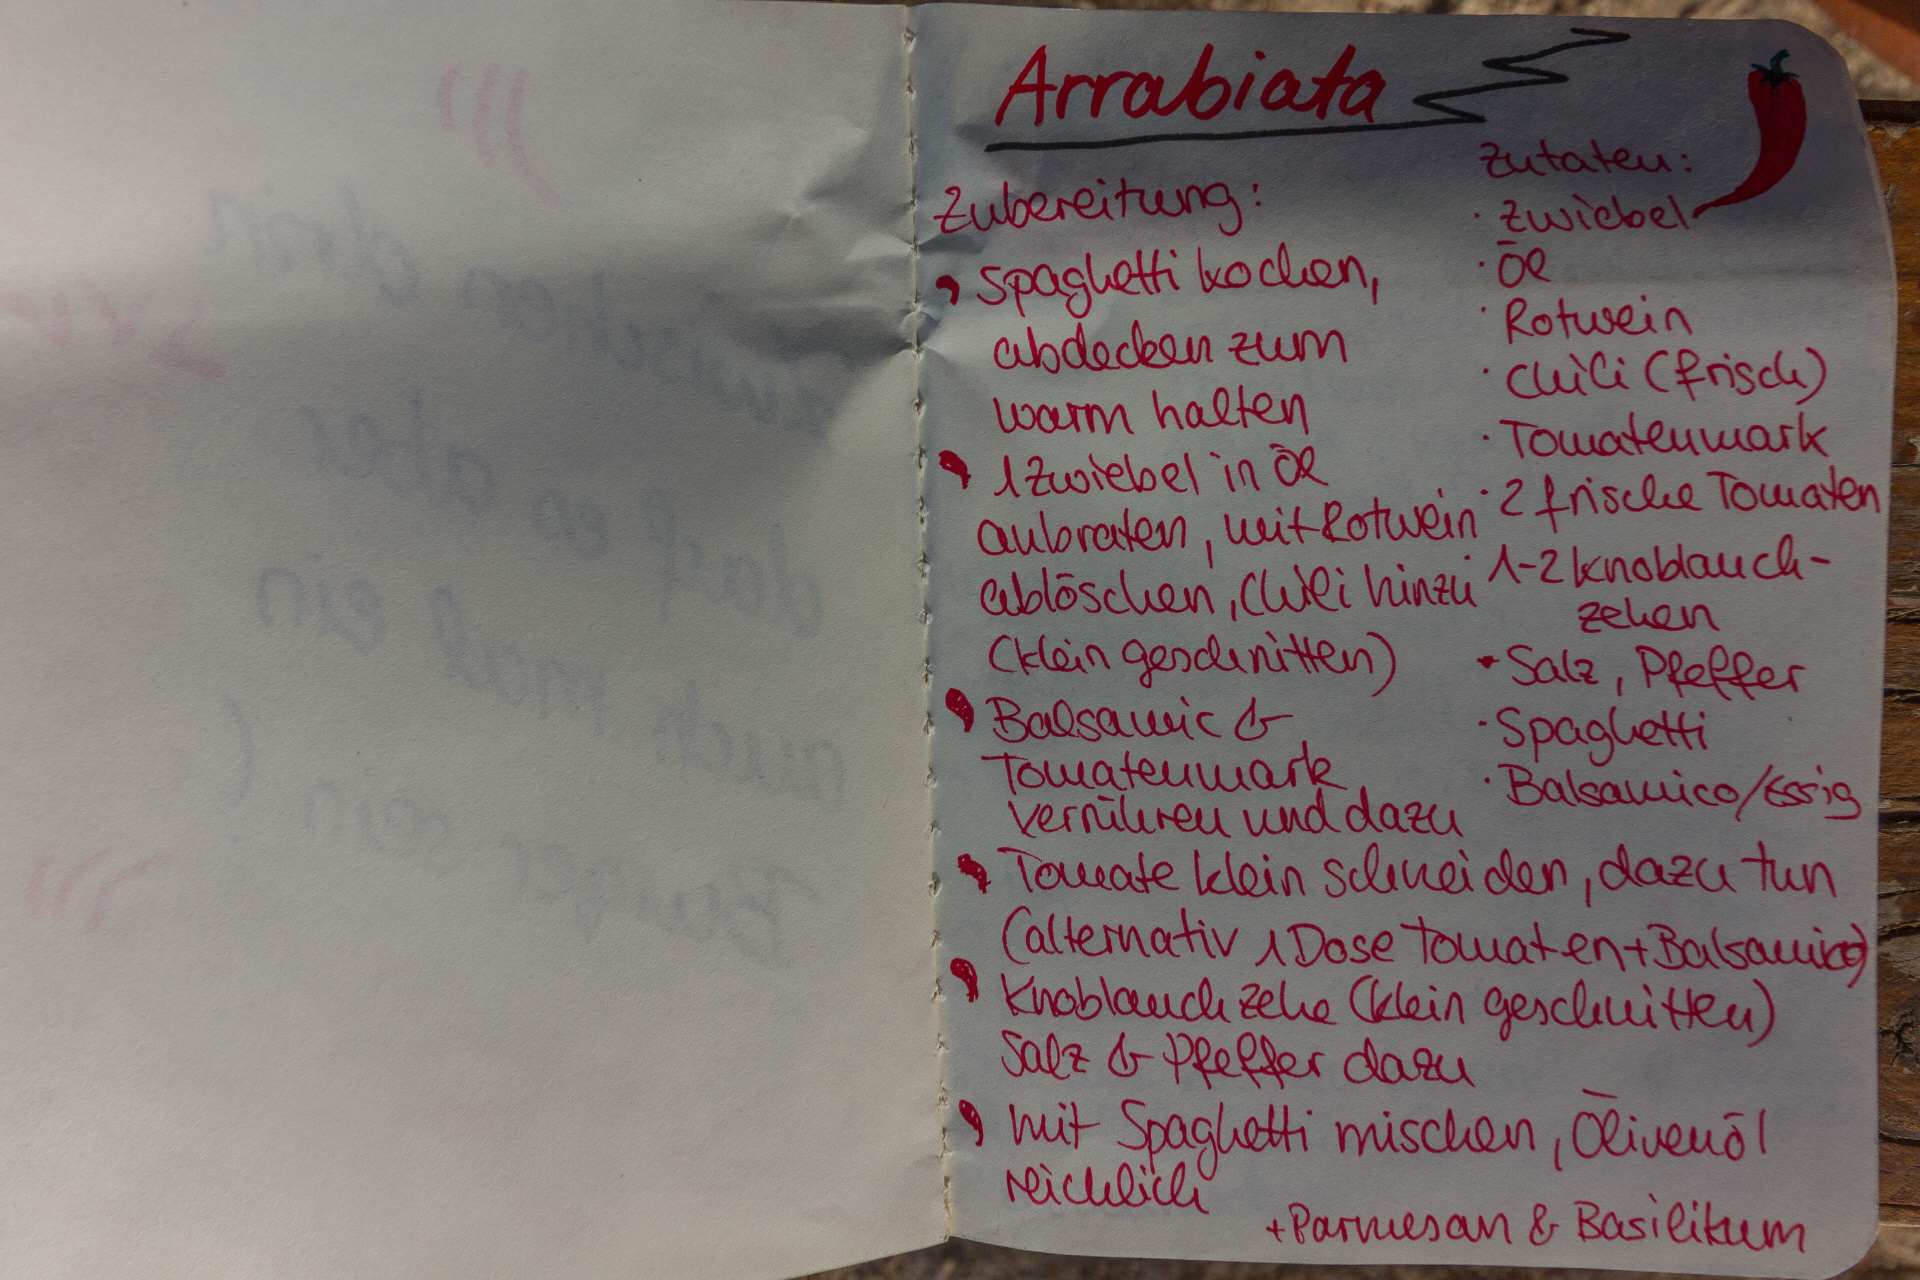 Arrabiata
Zubereitung:
Spaghetti kochen,
abdecken zum
warm halten
1 Zwiebel in Öl
anbraten, mit Rotwein
ablöschen, Chili hinzu
(klein geschnitten)
Balsamic &
Tomatenmark
verrühren und dazu
Tomate klein schneiden, dazu tun
(alternativ 1 Dose Tomaten + Balsamico)
Knoblauchzehe (klein geschnitten)
Salz & Pfeffer dazu
mit Spaghetti mischen, Ölivenöl
reichlich
+ Parmesan & Basilikum
Zutaten:
· Zwiebel
· Öl
· Rotwein
· Chili (frisch)
· Tomatenmark
· 2 frische Tomaten
· 1-2 Knoblauch-
zehen
· Salz, Pfeffer
· Spaghetti
· Balsamico/Essig